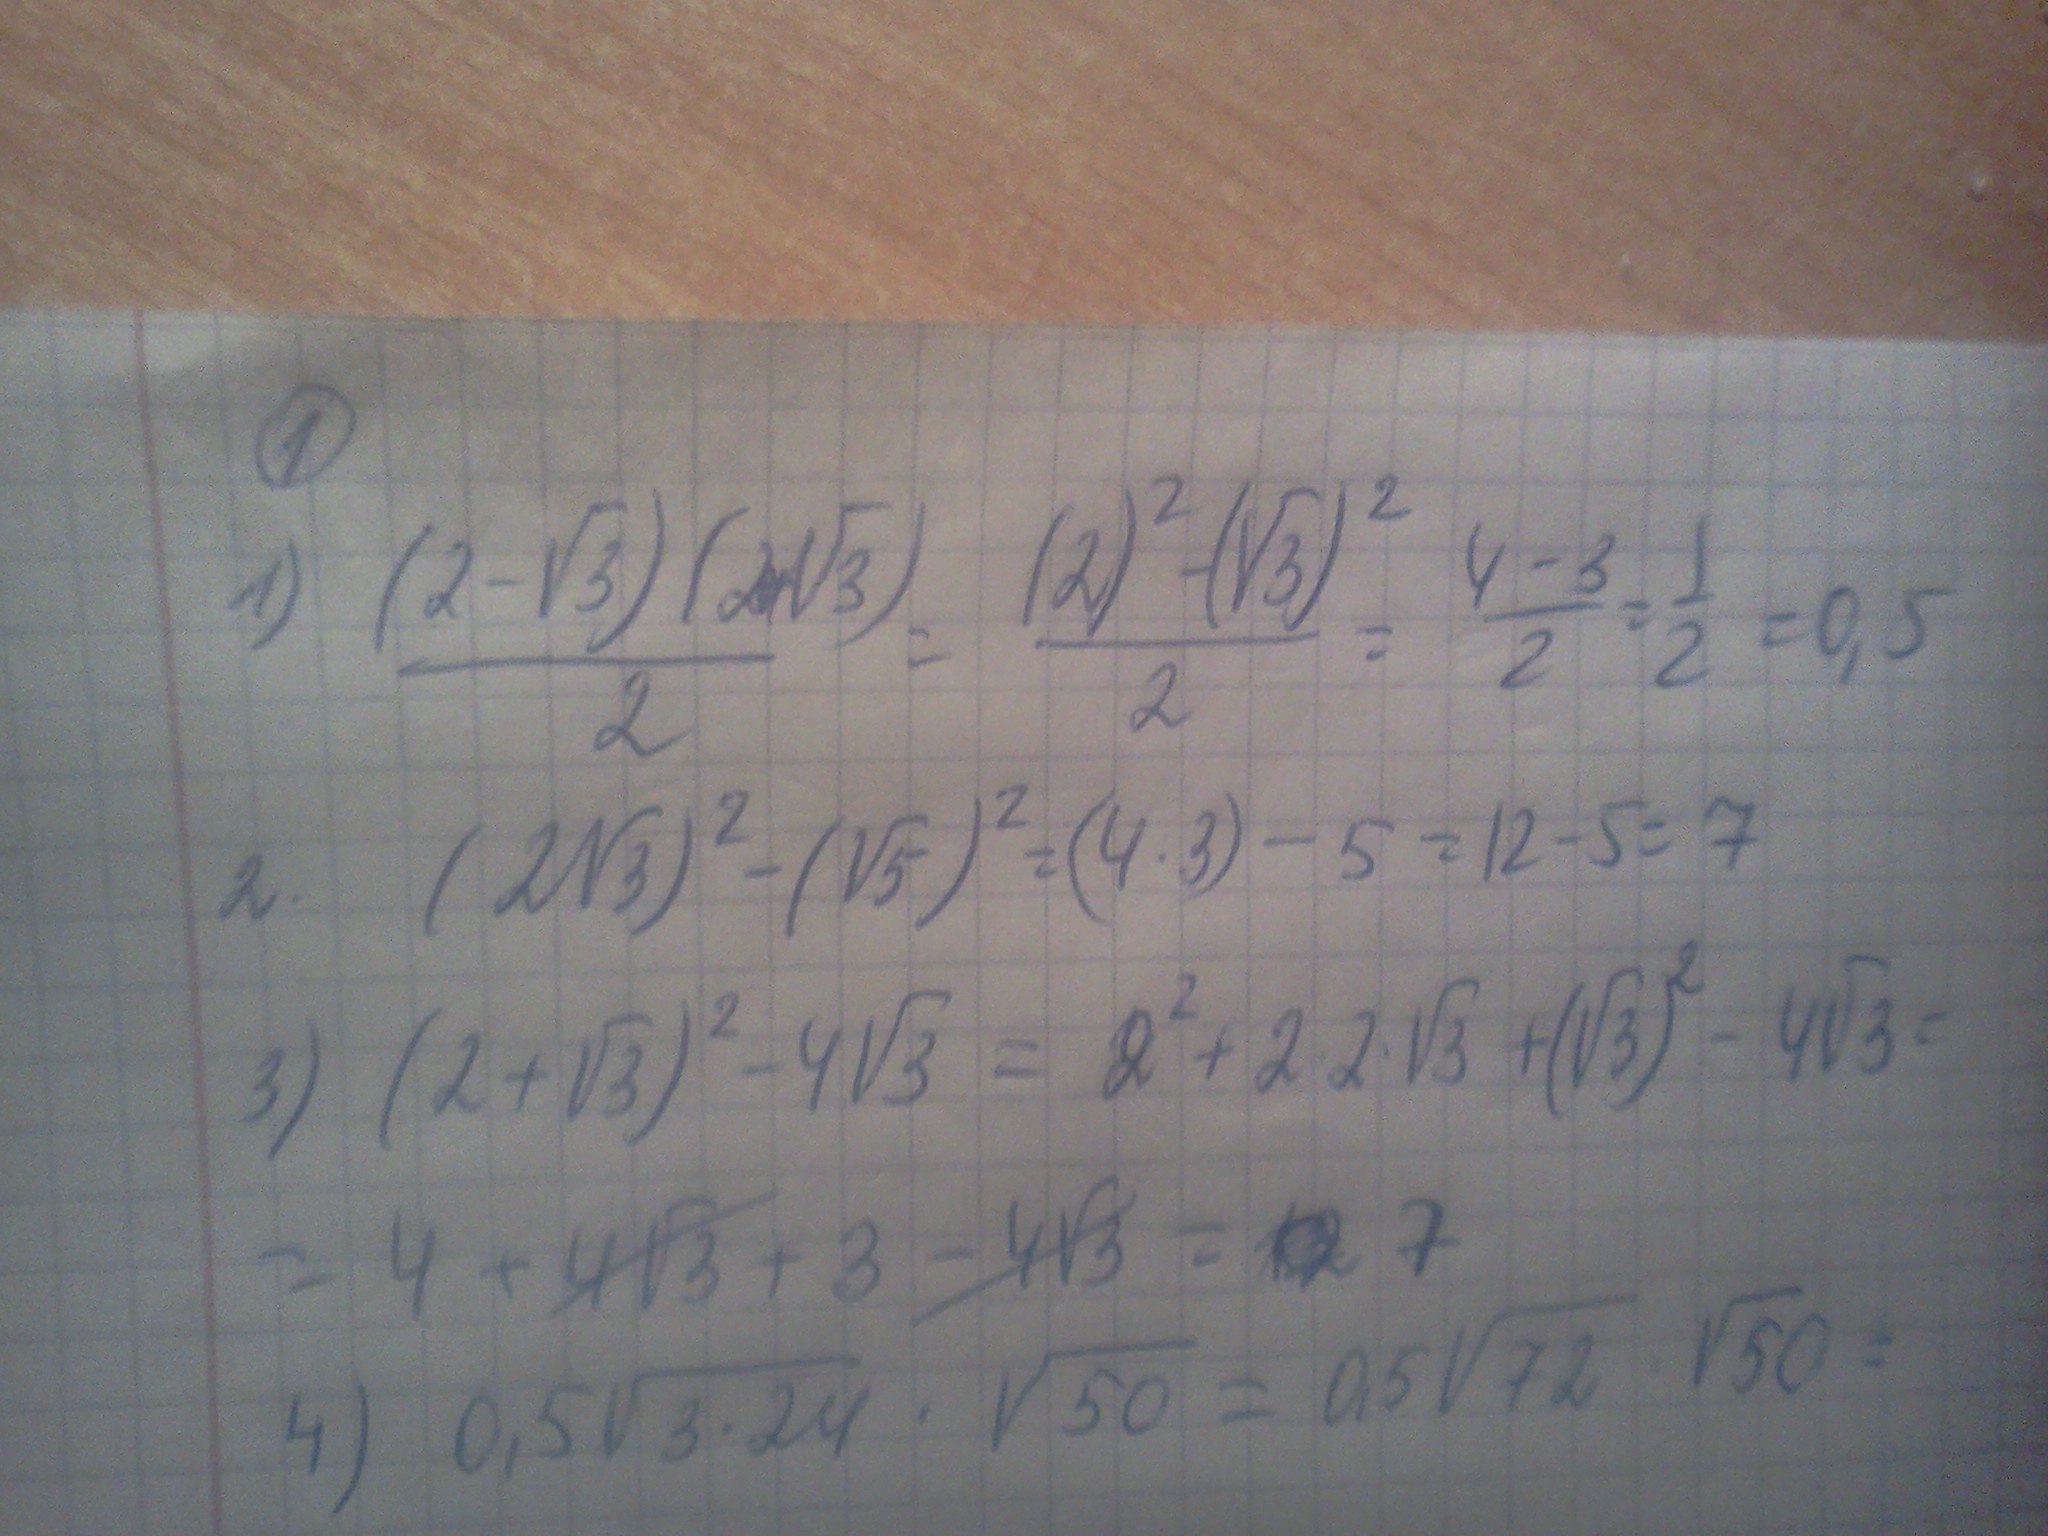 1
1) (2-√3)(2+√3)/2 = (2)²-(√3)²/2 = 4-3/2 = 1/2 = 0,5
2. (2√3)² - (√5)² = (4·3) - 5 = 12 - 5 = 7
3) (2+√3)² - 4√3 = 2² + 2·2·√3 + (√3)² - 4√3 =
= 4 + 4√3 + 3 - 4√3 = 7
4) 0,5√3·24 · √50 = 0,5√72 · √50 =